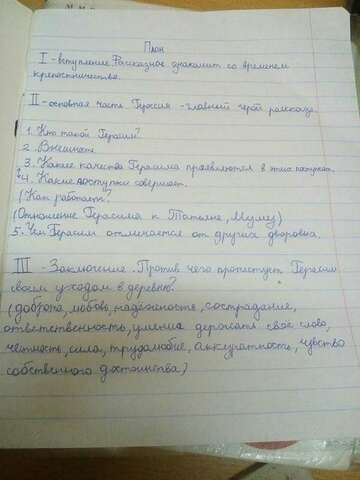 План
I - вступление. Рассказное знакомит со временем
крепостничества.
II - основная часть. Герасим - главный герой рассказа.
1. Кто такой Герасим?
2. Внешность
3. Какие качества Герасима проявляются в этих поступках.
4. Какие поступки совершает.
(Как работает?
(Отношение Герасима к Татьяне, Муму)
5. Чем Герасим отличается от других дворовых.
III - Заключение. Против чего протестует Герасим
своем уходом в деревню?
(доброта, любовь, надёжность, сострадание,
ответственность, умение держать своё слово,
честность, сила, трудолюбие, аккуратность, чувство
собственного достоинства)